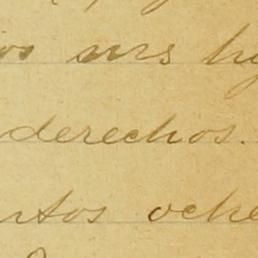 os mis hij
derechos.
ntos oche